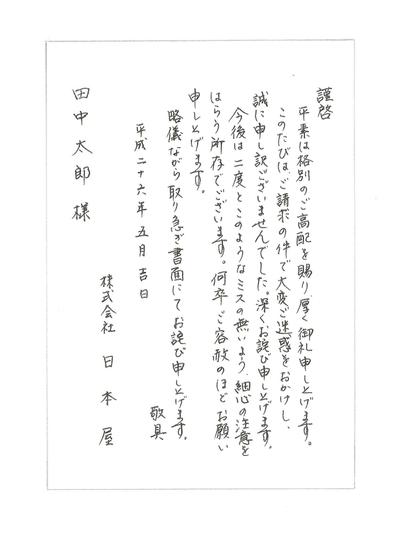 謹啓
平素は格別のご高配を賜り厚く御礼申し上げます。
このたびは、ご請求の件で大変ご迷惑をおかけし、
誠に申し訳ございませんでした。深くお詫び申し上げます。
今後は二度とこのようなミスの無いよう、細心の注意を
はらう所存でございます。何卒ご容赦のほどお願い
申し上げます。
略儀ながら取り急ぎ書面にてお詫び申し上げます。
敬具
平成二十六年五月吉日
株式会社 日本屋
田中太郎様